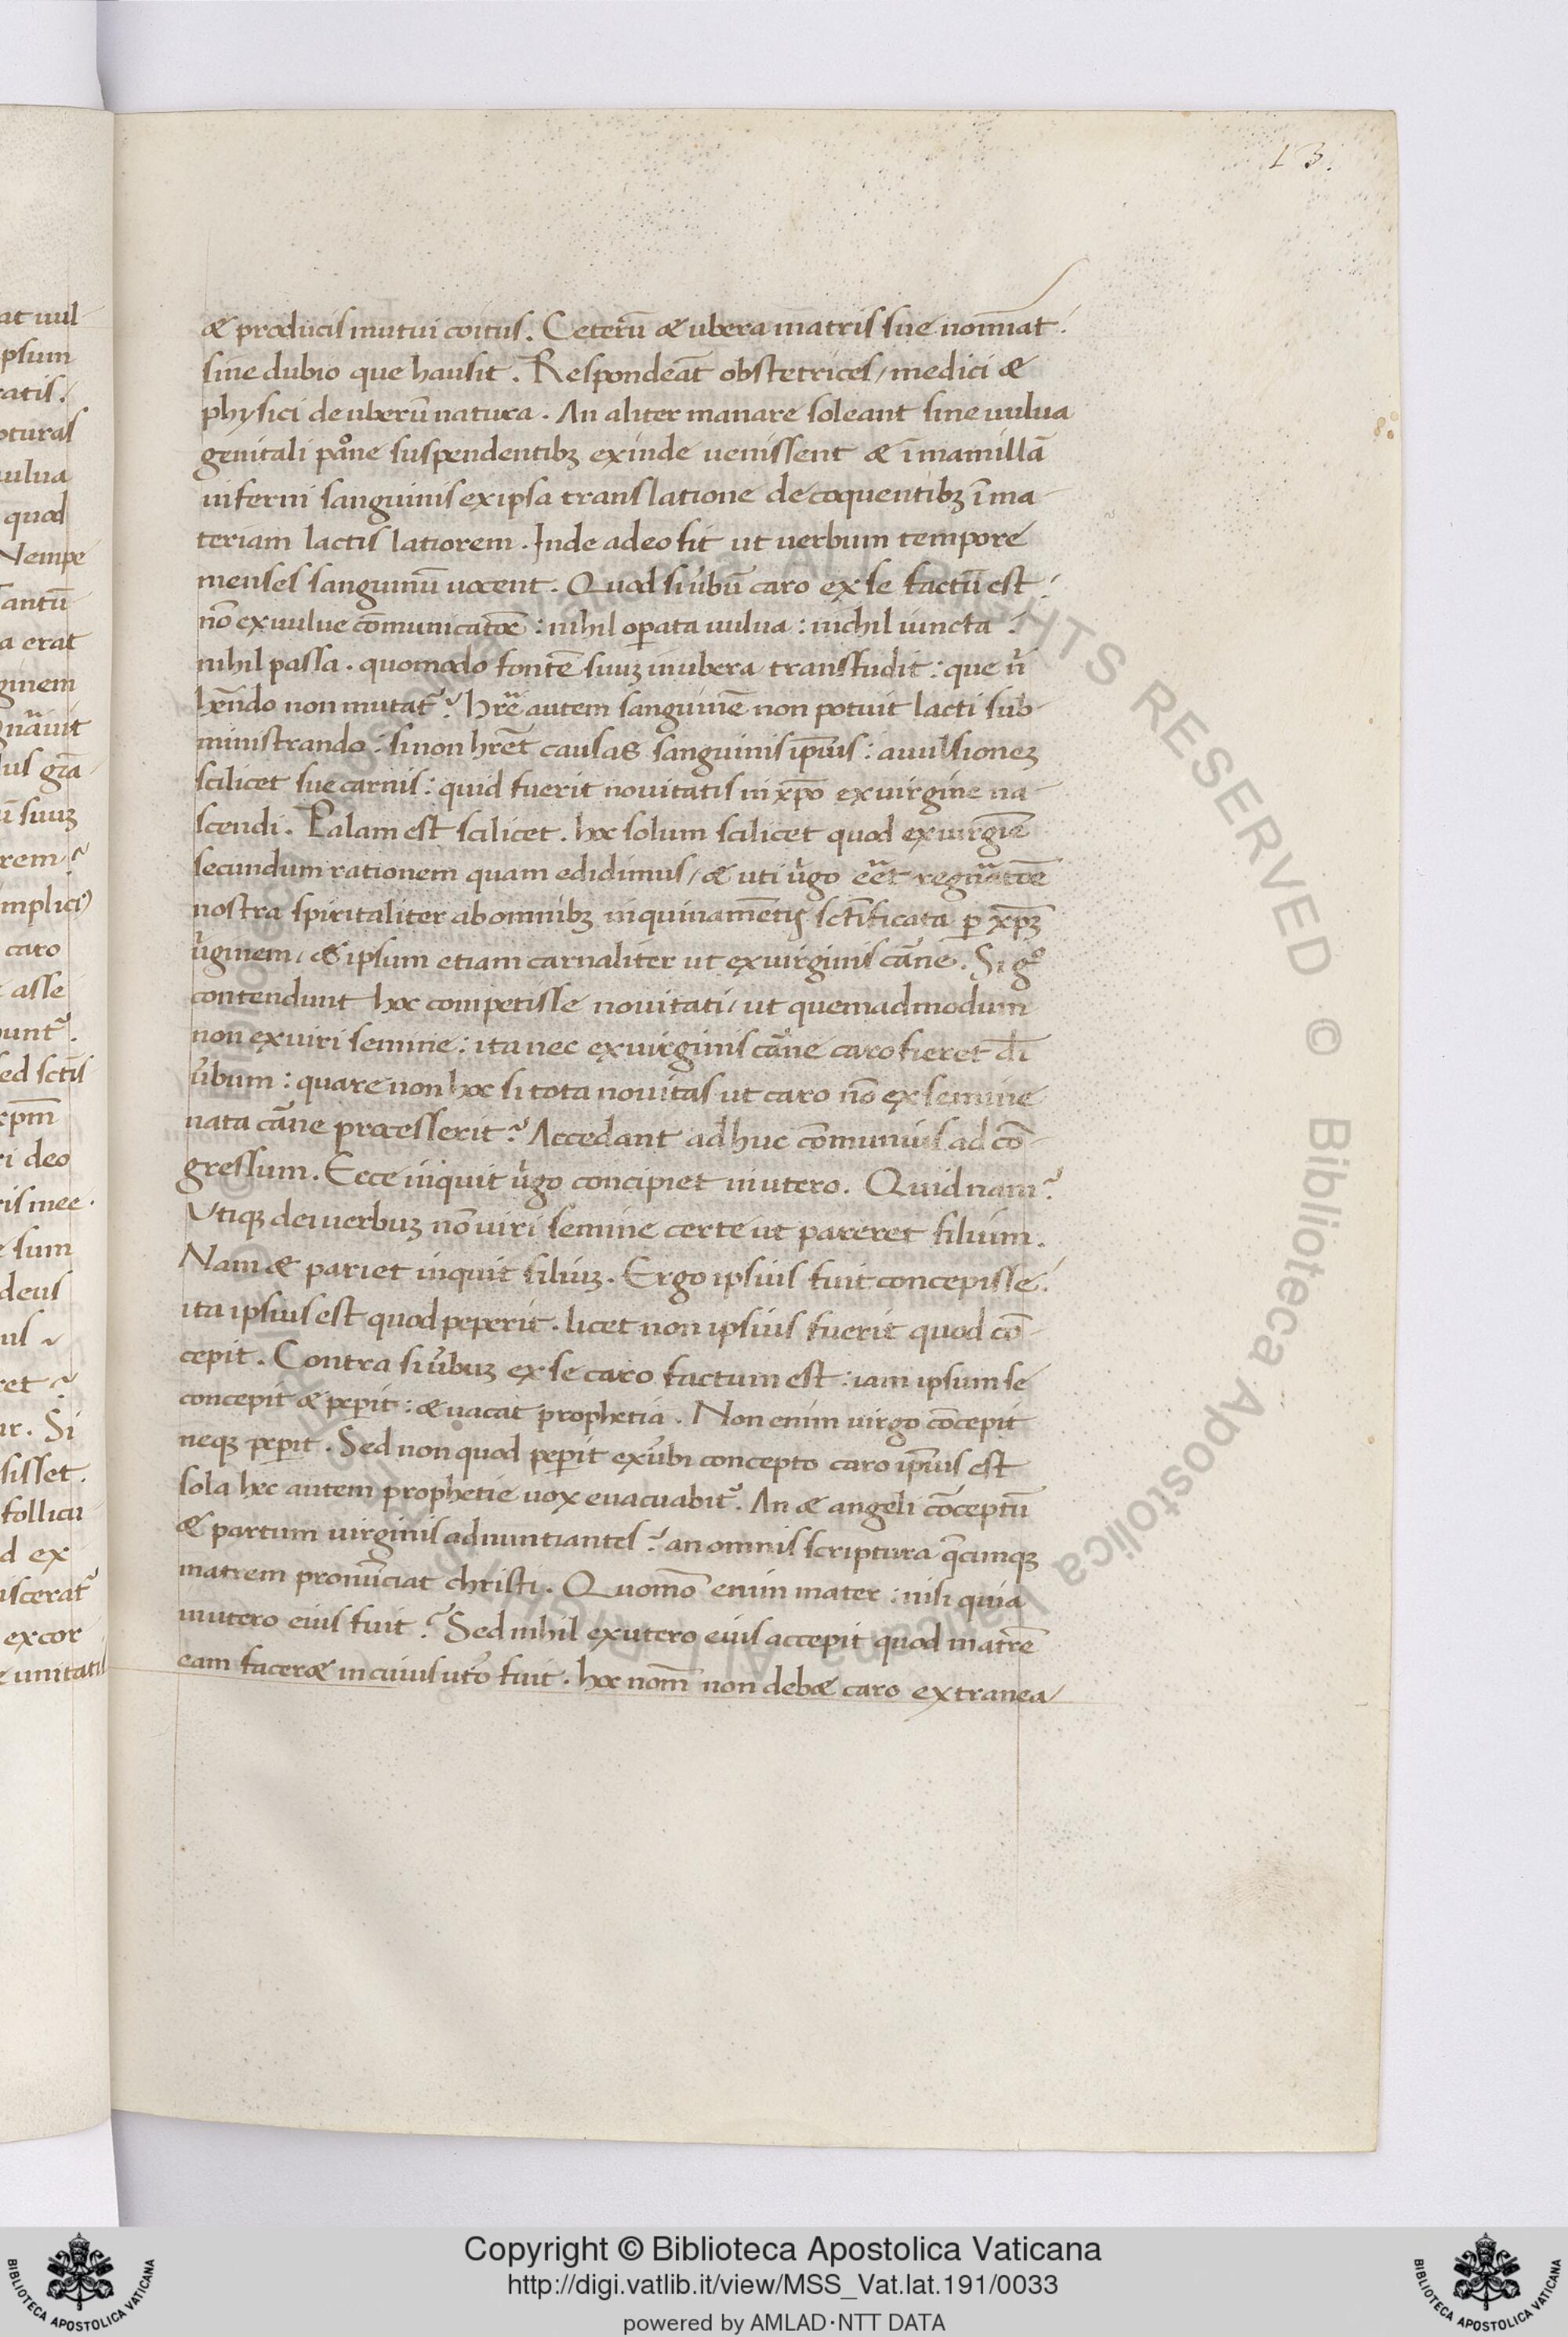 13.
at uul
psum
ratis.
pturas
uulua
quod
Nempe
tantū
a erat
ginem
gnauit
lus gr̄a
ū suuꝫ
rem?
implici
caro
t asse
bunt᷑.
sed sctīs
xpm̄
ri deo
ris mee.
e sum
deus
us ~
ret?
ur. Si
sisset.
follicu
d ex
iscerat᷑
excor
e unitatis
& producis mutui coitus. Ceterū & ubera matris sue noīnat:
sine dubio que hausit. Respondeāt obstetrices / medici &
physici de uberū natura. An aliter manare soleant sine uulua
genitali pōne suspendentibꝫ exinde uenissent & ī mamillā
inferni sanguinis ex ipsa translatione decoquentibꝫ ī ma-
teriam lactis latiorem. Inde adeo fit ut uerbum tempore
menses sanguinū uocent. Quod si u̓bū caro ex se factū est:
nō ex uulue cōmunicatōe: nihil op̄ata uulua: nichil iuncta:
nihil passa. quomodo fontē suuꝫ in ubera transfudit: que n̓
hēndo non mutat᷑? Hr̄e autem sanguinē non potuit lacti sub-
ministrando: si non hr̄et causas sanguinis ip̄ius: auulsioneꝫ
scilicet sue carnis: quid fuerit nouitatis in xp̄o ex uirgine na-
scendi. Palam est scilicet. hoc solum scilicet quod ex uirgīe
secundum rationem quam edidimus / & uti u̓go eēt regn̄atōe
nostra spiritaliter ab omnibꝫ inquinamētis sctīficata p̱ xp̄ꝫ
u̓ginem / & ipsum etiam carnaliter ut ex uirginis cāne. Si gͦ
contendunt hoc competisse nouitati / ut quemadmodum
non ex uiri semine: ita nec ex uirginis cāne caro fieret dī
u̓bum: quare non hoc si tota nouitas ut caro nō ex semine
nata cāne processerit? Accedant adhuc cōmunius ad cō-
gressum. Ecce inquit u̓go concipiet in utero. Quidnam?
Utiqꝫ dei uerbuꝫ nō uiri semine certe ut pareret filium.
Nam & pariet inquit filiuꝫ. Ergo ipsius fuit concepisse:
ita ipsius est quod peperit. licet non ipsius fuerit quod cō-
cepit. Contra si u̓buꝫ ex se caro factum est: iam ipsum se
concepit & pep̄it: & uacat prophetia. Non enim uirgo cōcepit
neqꝫ pep̄it. Sed non quod pep̄it ex u̓bi concepto caro ip̄ius est
sola hec autem prophetie uox euacuabit᷑. An & angeli cōceptū
& partum uirginis adnuntiantes? an omnis scriptura q̄cunqꝫ
matrem pronūciat christi. Quomō enim mater: nisi quia
in utero eius fuit? Sed nihil ex utero eius accepit quod matrē
eam facer& in cuius uto̓ fuit. hoc nom̄ non deb& caro extranea
Copyright © Biblioteca Apostolica Vaticana
http://digi.vatlib.it/view/MSS_Vat.lat.191/0033
powered by AMLAD·NTT DATA